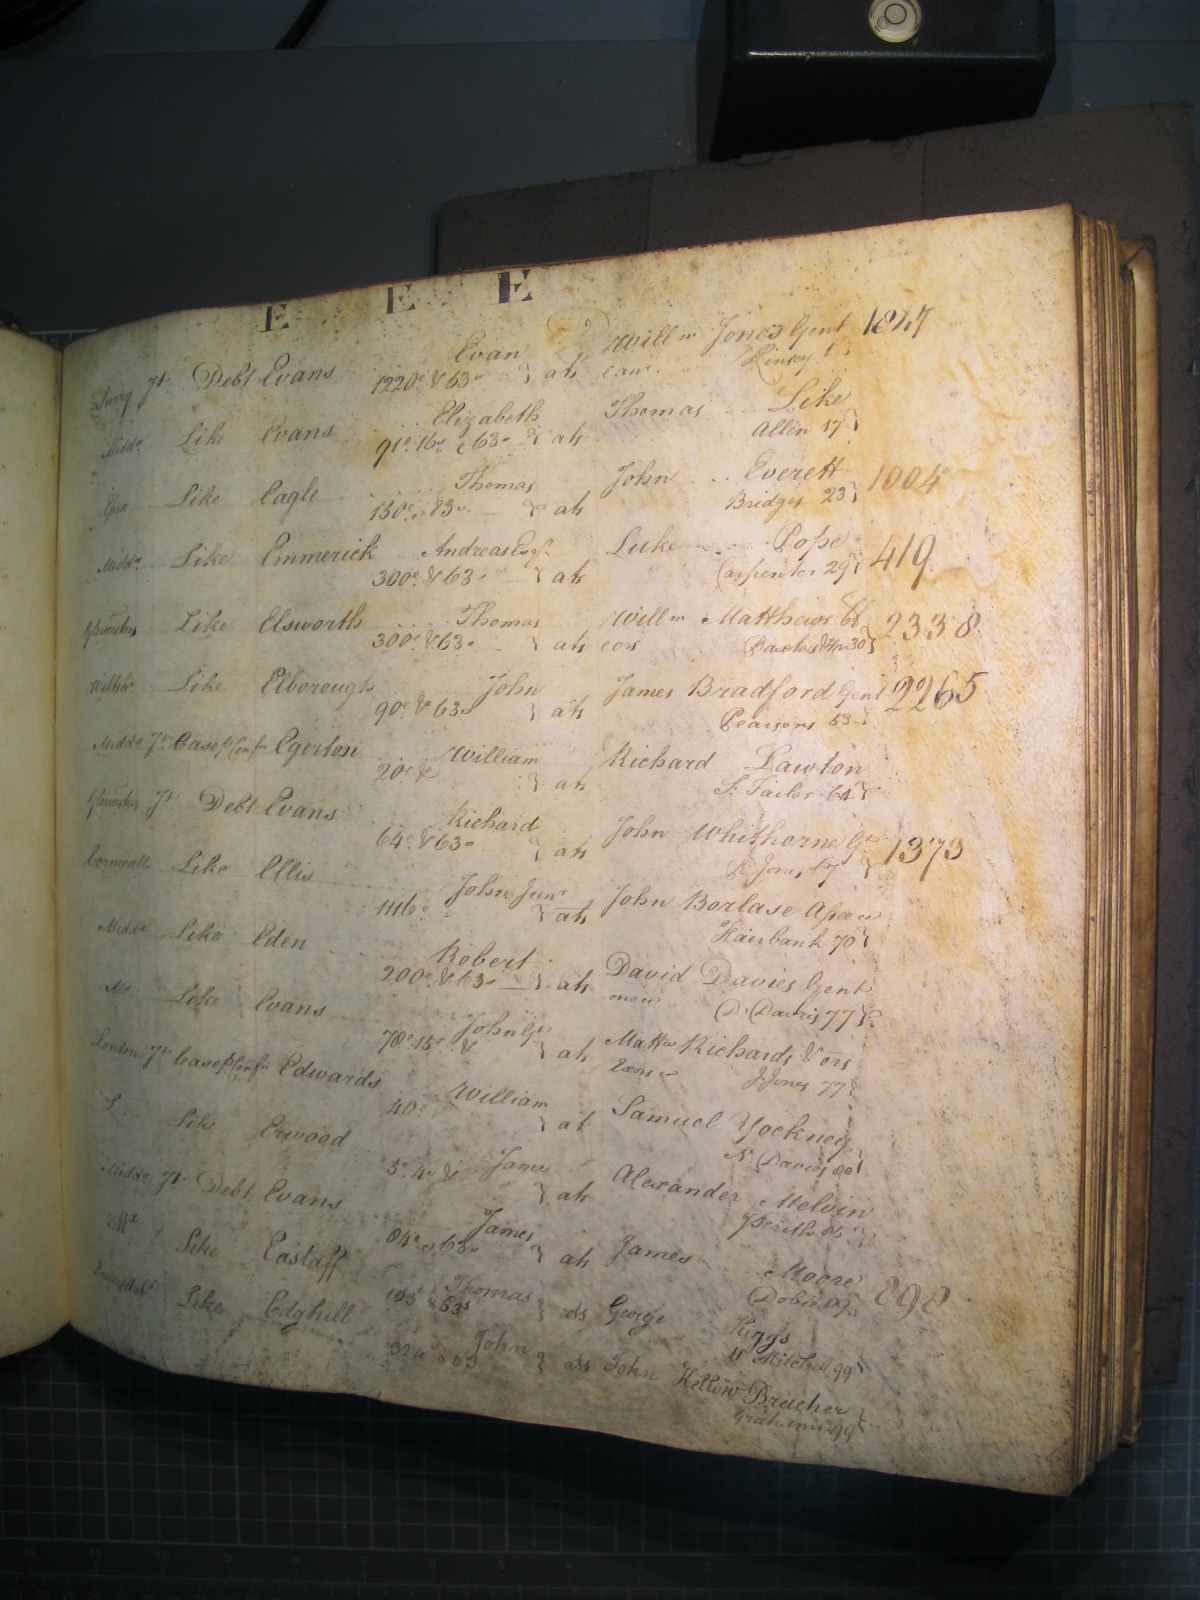 E E E
Surry Jt Debt Evans Evan Willm Jones Gent 1847
1220£ & 63s } ats Kinsey 1
Midds Like Evans Elizabeth Thomas Like
91£ 16s & 63s } ats Allen 17}
Like Eagle Thomas John Everett 1004
150£ 83s } ats Bridges 23}
Midds Like Emmerick Andreas Esqr Luke Pope 419
300£ & 63s } ats Carpenter 29}
Gloucester Like Elsworth Thomas Willm Matthews 2338
300£ & 63s } ats 30}
Wiltshr Like Elborough John James Bradford Gent 2265
90£ & 63s } ats Pearsons 53}
Midds Jt Case Egerton William Richard Lawton
20£ & } ats S. Tailor 64}
Gloucester Jt Debt Evans Richard John Whithorne Gt 1373
64£ & 63s } ats R Jones 67}
Cornwall Like Ellis John Junr John Borlase
1116£ } ats Hairbank 70}
Midds Like Eden Robert David Davies Gent
200£ & 63s } ats D. Davies 77}
Like Evans John Gt Mattw Richards & ors
78£ 15s & } ats J. Jones 77}
London Jt Case Edwards William Samuel Yockney
40£ } at N. Davies 80}
Like Erwood James Alexander Melvin
5£ 4s & } ats
Midds Jt Debt Evans James James Moore 898
84£ & 63s } ats Dobie
Like Eastaff Thomas George Higgs
103£ & 53s } ats Mitchell 99}
Like Edghill John John Hellow Bracher
63 } ats Grahams 99}